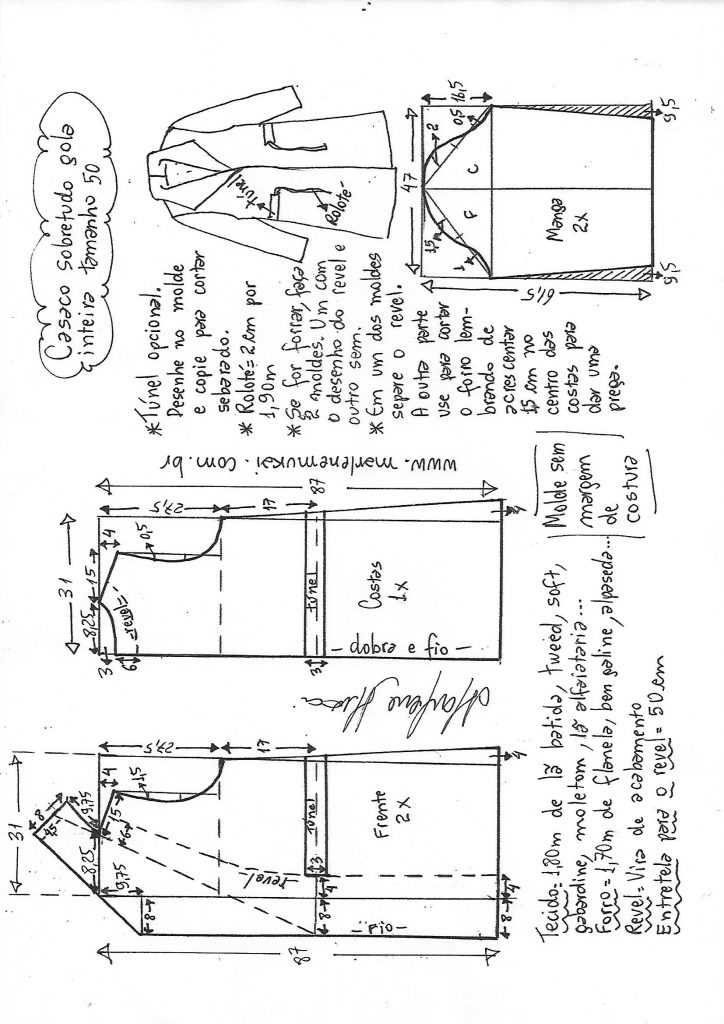 Casaco sobretudo gola
inteira tamanho 50
*Túnel opcional.
Desenhe no molde
e copie para cortar
sebarado.
* Rolotê = 2 cm por
1,90m
* Se for forrar, faça
2 moldes. Um com
o desenho do revel e
outro sem.
* Em um dos moldes
separe o revel.
A outa parte
use para cortar
o forro lem-
brando de
acrescentar
15 cm no
centro das
costas para
dar uma
prega.
Túnel
Rolotê
47
16,5
2
0,5
C
F
1,5
1
Manga
2x
61,5
5,5
5,5
www.marlenemukai.com.br
87
27,5
17
31
4
15
0,5
8,25
revel
3
6
Túnel
3
Costas
1x
dobra e fio
4
Molde sem
margem
de
costura
31
27,5
17
4
1,5
15
8
4,5
9,75
8,25
9,75
6
revel
Túnel
3
4
Frente
2x
8
8
Fio
4
4
8
87
Tecido = 1,80m de lã batida, tweed, soft,
gabardine, moletom, lã alfaiataria...
Forro = 1,70m de flanela, bengaline, alpaseda...
Revel = Vira de acabamento
Entretela para o revel = 50 cm